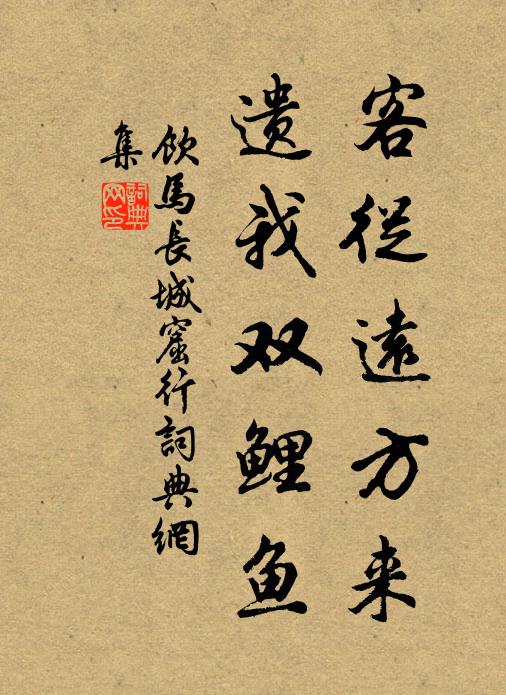 客從遠方来
遗我双鲤鱼
飲馬長城窟行詞典網
集
詞典网印